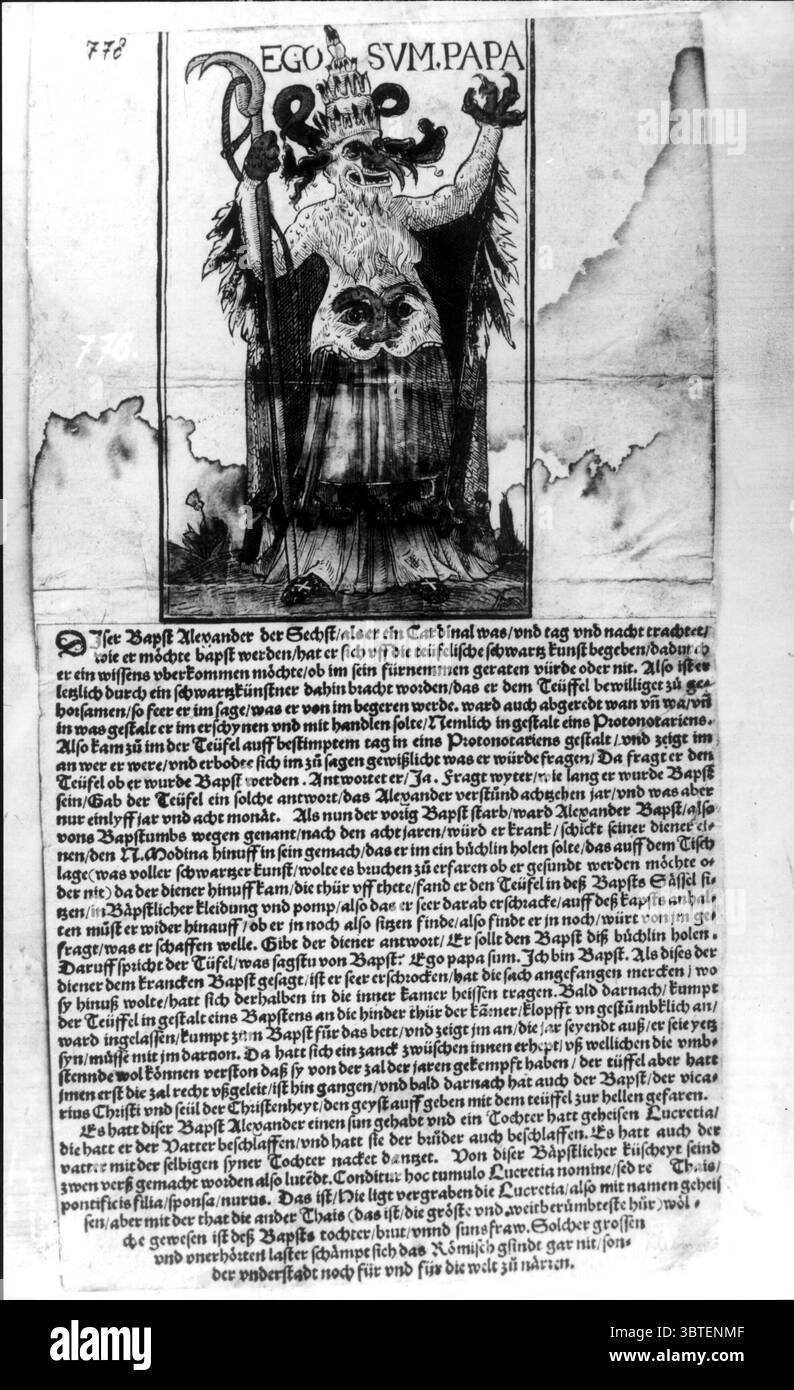 778
EGO SVM. PAPA
776.
alamy
DIser Bapst Alexander der Sechst/als er ein Cardinal was/vnd tag vnd nacht trachtet/
wie er möchte bapst werden/hat er sich vff die teüfelische schwartz kunst begeben/dadurch
er ein wissens vberkommen möchte/ob im sein fürnemmen geraten würde oder nit. Also ist er
letzlich durch ein schwartzkünstner dahin bracht worden/das er dem Teüffel bewilliget zů ge-
horsamen/so feer er im sage/was er von im begeren werde. ward auch abgeredt wan vñ wa/vñ
in was gestalt er im erschynen vnd mit handlen solte/Nemlich in gestalt eins Protonotariens.
Also kam zů im der Teüfel auff bestimptem tag in eins Protonotariens gestalt/vnd zeigt im
an wer er were/vnd erbodte sich im zů sagen gewißlicht was er würde fragen/Da fragt er den
Teüfel ob er wurde Bapst werden. Antwortet er/Ja. Fragt wyter/wie lang er wurde Bapst
sein/Gab der Teüfel ein solche antwort/das Alexander verstůnd achtzehen jar/vnd was aber
nur einlyff jar vnd acht monät. Als nun der vorig Bapst starb/ward Alexander Bapst/also
vons Bapstumbs wegen genant/nach den acht jaren/würd er kranck/schickt seiner diener ei-
nen/den N. Modina hinuff in sein gemach/das er im ein bůchlin holen solte/das auff dem Tisch
lage(was voller schwartzer kunst/wolte es bruchen zů erfaren ob er gesundt werden möchte o-
der nit) da der diener hinuff kam/die thür vff thete/fand er den Teüfel in deß Bapsts Sässel si-
tzen/in Bäpstlicher kleidung vnd pomp/also das er seer darab erschracke/auff deß bapsts anhal-
ten můst er wider hinauff/ob er jn noch also sitzen finde/also findt er jn noch/würt von jm ge-
fragt/was er schaffen welle. Gibt der diener antwort/Er sollt den Bapst diß bůchlin holen.
Daruff spricht der Tüfel/was sagstu von Bapst? Ego papa sum. Ich bin Bapst. Als dises der
diener dem krancken Bapst gesagt/ist er seer erschrocken/hat die sach angefangen mercken/wo
sy hinuß wolte/hatt sich derhalben in die inner kamer heissen tragen. Bald darnach/kumpt
der Teüffel in gestalt eins Bapstens an die hinder thür der kämer/klopfft vn gestümbklich an/
ward ingelassen/kumpt zum Bapst für das bett/vnd zeigt jm an/die jar seyendt auß/er seie yetz
syn/můsse mit jm daruon. Da hatt sich ein zanck zwüschen innen erhept/vß wellichen die vmb-
stennde wol können verston daß sy von der zal der jaren gekempft haben/der tüffel aber hatt
jmen erst die zal recht vßgeleit/ist hin gangen/vnd bald darnach hat auch der Bapst/der vica-
rius Christi vnd seül der Christenheyt/den geyst auff geben mit dem teüffel zur hellen gefaren.
Es hatt diser Bapst Alexander einen sun gehabt vnd ein Tochter hatt geheisen Lucretia/
die hatt er der Vatter beschlaffen/vnd hatt sie der brůder auch beschlaffen. Es hatt auch der
vatter mit der selbigen syner Tochter nacket dantzet. Von diser Bäpstlicher küscheyt seind
zwen verß gemacht worden also lutēdt. Conditur hoc tumulo Lucretia nomine/sed re Thais/
pontificis filia/sponsa/nurus. Das ist/Hie ligt vergraben die Lucretia/also mit namen geheis
sen/aber mit der that die ander Thais(das ist/die gröste vnd weitberümbteste hůr) wöl-
che gewesen ist deß Bapsts tochter/brut/vnnd sunsfraw. Solcher grossen
vnd vnerhörten laster schämpt sich das Römisch gsindt gar nit/son-
der vnderstadt noch für vnd für die welt zů närren.
alamy
Image ID: 3BTENMF
www.alamy.com